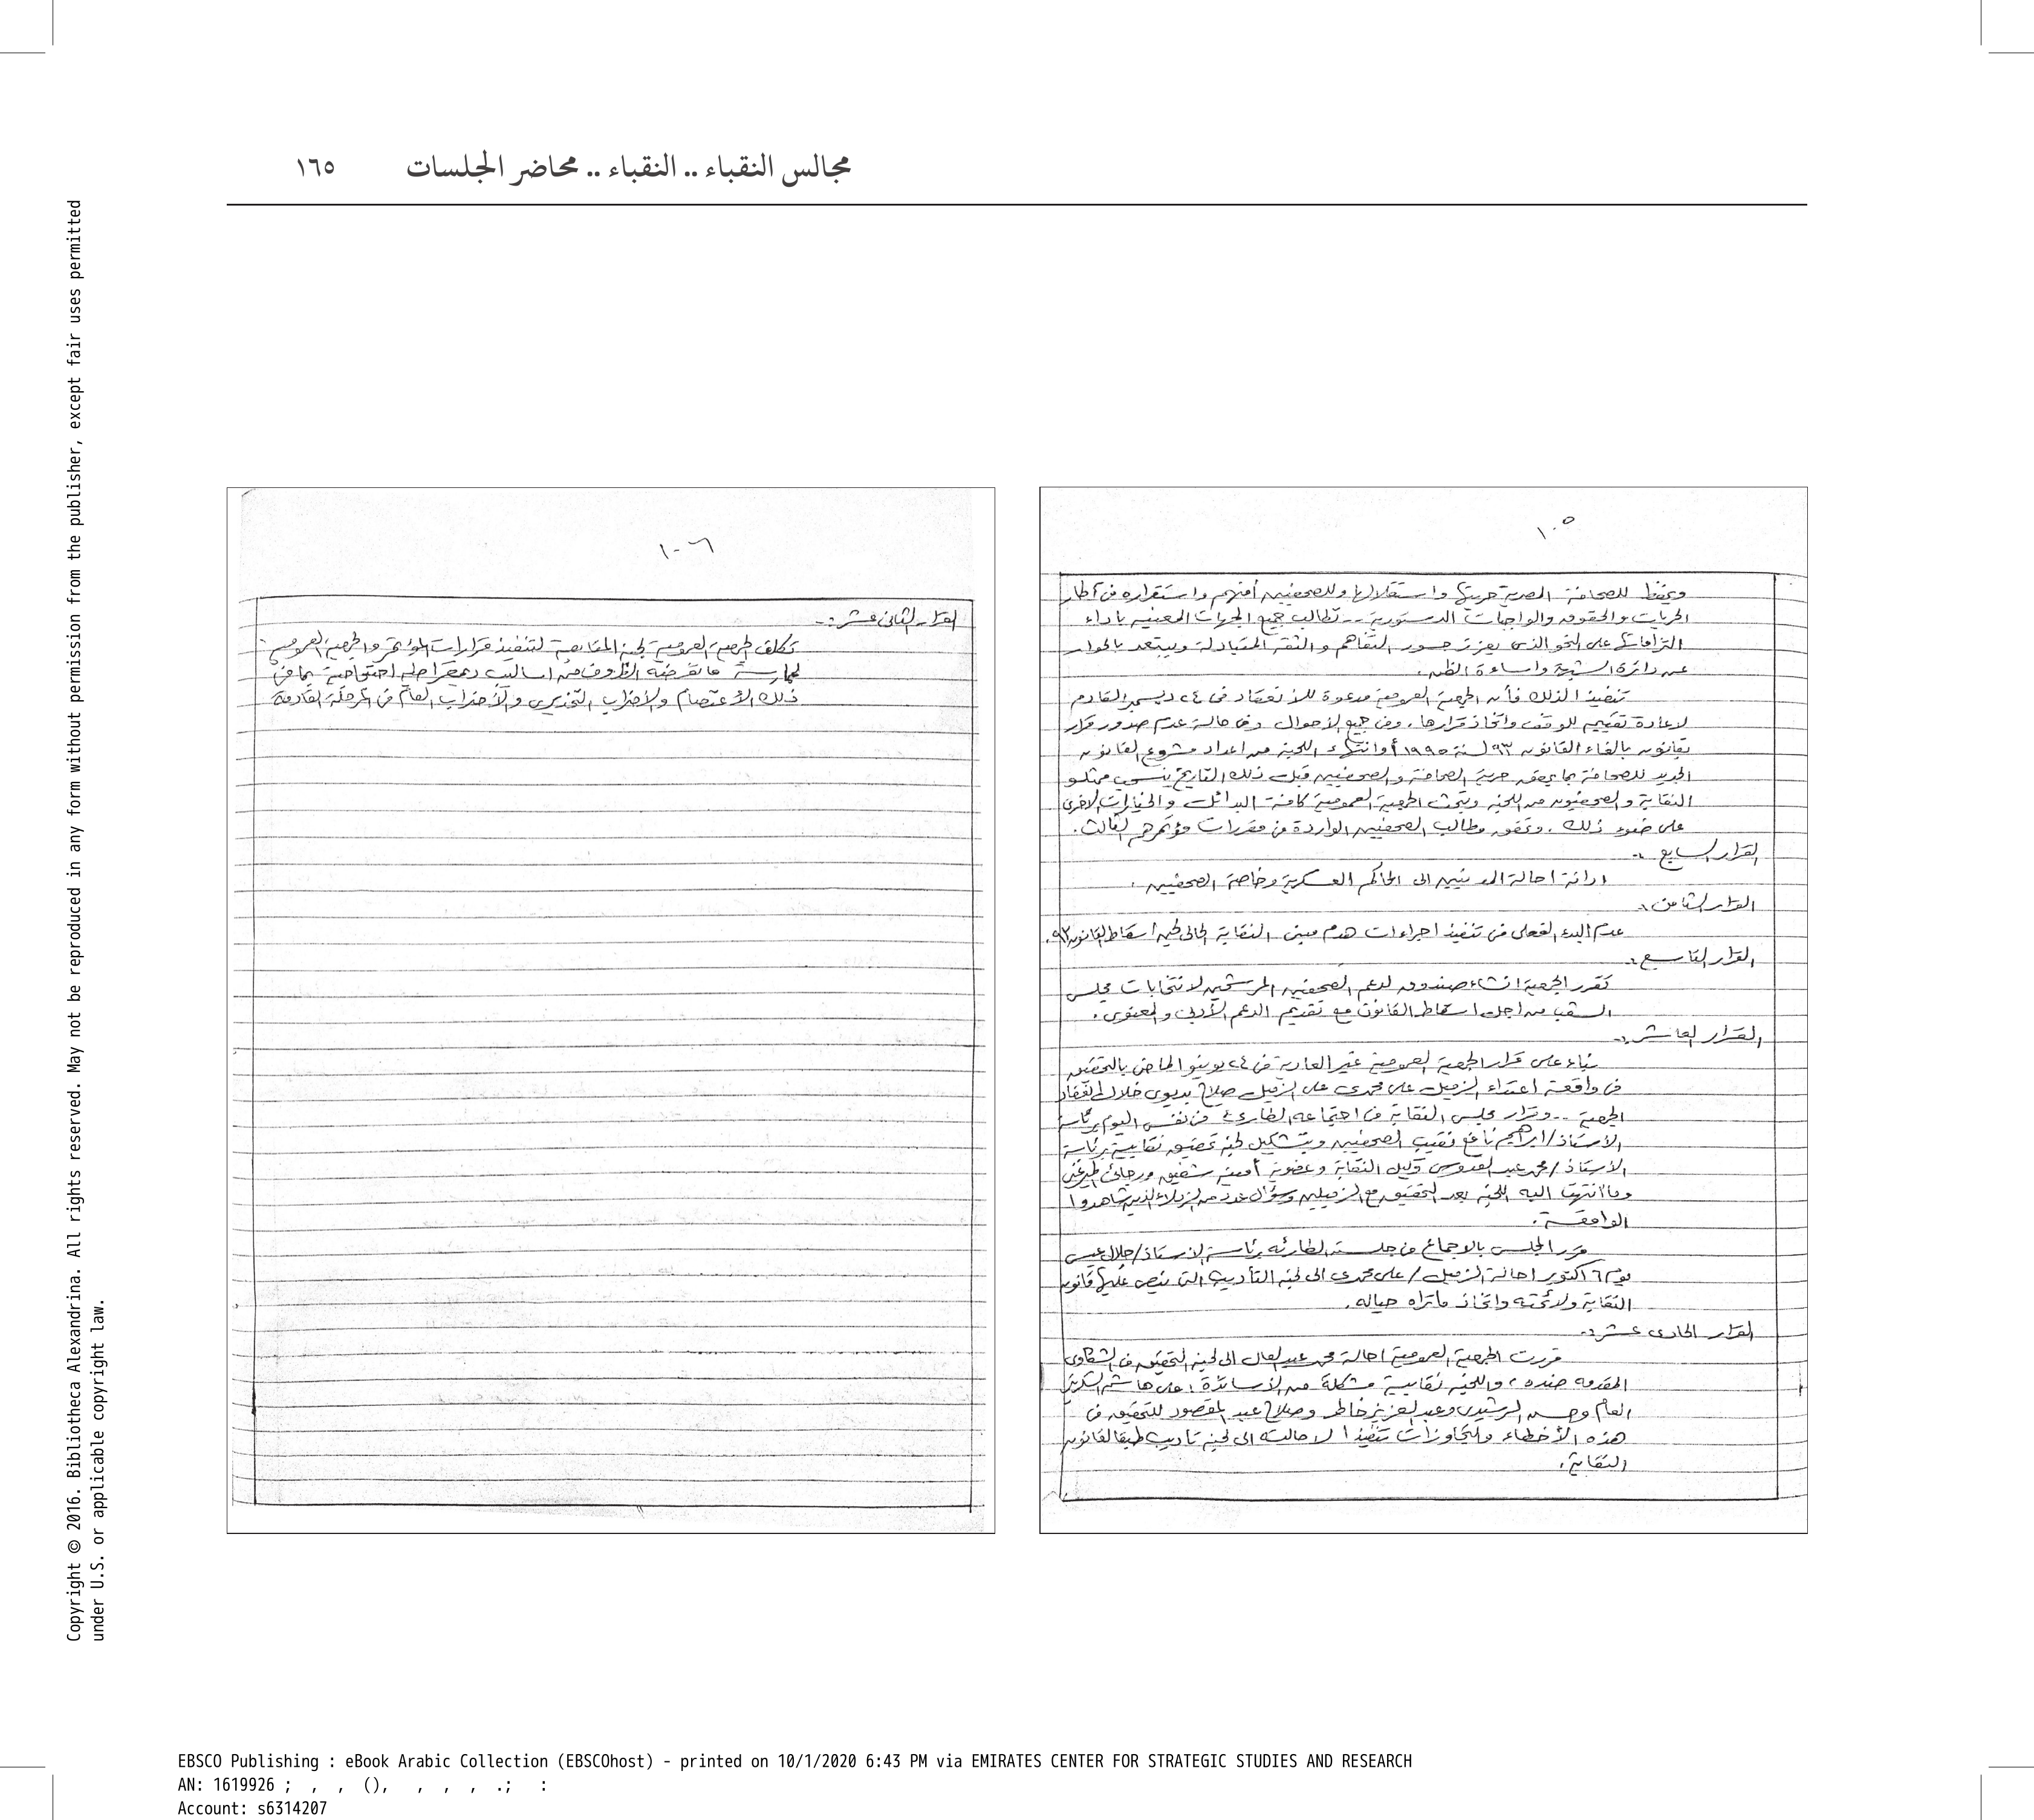 مجالس النقباء .. النقباء .. محاضر الجلسات ١٦٥
١٠٥
ويحفظ للصحافة المصرية حريتها واستقلالها وللصحفيين أمنهم واستقراره فى اطار
الحريات والحقوق والواجبات الدستورية .. تطالب جميع الجهات المعنية بأداء
التزاماتها على النحو الذى يعزز جسور التفاهم والثقة المتبادلة ويبتعد بالحوار
عن دائرة الشبهة واساءة الظن .
تنفيذا لذلك فأن الجمعية العمومية مدعوة للانعقاد فى ٢٤ ديسمبر القادم
لاعادة تقييم الموقف واتخاذ قرارها . وفى جميع الأحوال وفى حالة عدم صدور قرار
بقانون بالغاء القانون ٩٣ لسنة ١٩٩٥ أو انتهاء اللجنة من اعداد مشروع القانون
الجديد للصحافة بما يحقق حرية الصحافة والصحفيين قبل ذلك التاريخ ينسحب ممثلو
النقابة والصحفيون من اللجنة وتبحث الجمعية العمومية كافة البدائل والخيارات الأخرى
على ضوء ذلك . وتحقق مطالب الصحفيين الواردة فى مقررات مؤتمرهم الثالث .
القرار السابع :-
ادانة احالة المدنيين الى المحاكم العسكرية وخاصة الصحفيين .
القرار الثامن :-
عدم البدء الفعلى فى تنفيذ اجراءات هدم مبنى النقابة الحالى لحين اسقاط القانون ٩٣ .
القرار التاسع :-
تقرر الجمعية انشاء صندوق لدعم الصحفيين المرشحين لانتخابات مجلس
الشعب من اجل اسقاط القانون مع تقديم الدعم الأدبى والمعنوى .
القرار العاشر :-
بناء على قرار الجمعية العمومية غير العادية فى ٢٤ يونيو الماضى بالتحقيق
فى واقعة اعتداء الزميل على محمدى على الزميل صلاح بديوى خلال انعقاد
الجمعية .. وقرار مجلس النقابة فى اجتماعه الطارئ فى نفس اليوم برئاسة
الأستاذ/ ابراهيم نافع نقيب الصحفيين وبتشكيل لجنة تحقيق نقابية برئاسة
الأستاذ / محمد عبد القدوس وكيل النقابة وعضوية أمينة شفيق ورجائى الميرغنى
وما انتهت اليه اللجنة بعد التحقيق مع الزميلين وسؤال عدد من الزملاء الذين شاهدوا
الواقعة .
قرر المجلس بالاجماع فى جلسته الطارئه برئاسة الاستاذ/ جلال عيسى
يوم ٦ اكتوبر احالة الزميل / على محمدى الى لجنة التأديب التى ينص عليها قانون
النقابة ولائحته واتخاذ ماتراه حياله .
القرار الحادى عشر :-
قررت الجمعية العمومية احالة محمد عبد العال الى لجنة التحقيق فى الشكاوى
المقدمه ضده ، واللجنة نقابية مشكلة من الأساتذة : على هاشم السكرتير
العام وحسن الرشيدى وعبد العزيز خاطر وصلاح عبد المقصود للتحقيق فى
هذه الأخطاء والتجاوزات تنفيذا لاحالته الى لجنة تأديب طبقا لقانون
النقابة .
١٠٦
القرار الثانى عشر :-
تكلف الجمعية العمومية لجنة المتابعة لتنفيذ قرارات المؤتمر والجمعية العمومية
لممارسة ما تفرضه الظروف من اساليب ديمقراطية احتجاجية بما فى
ذلك الأعتصام والأضراب التحذيرى والأضراب العام فى المرحلة القادمة
Copyright © 2016. Bibliotheca Alexandrina. All rights reserved. May not be reproduced in any form without permission from the publisher, except fair uses permitted
under U.S. or applicable copyright law.
EBSCO Publishing : eBook Arabic Collection (EBSCOhost) - printed on 10/1/2020 6:43 PM via EMIRATES CENTER FOR STRATEGIC STUDIES AND RESEARCH
AN: 1619926 ; , , (), , , , .; :
Account: s6314207